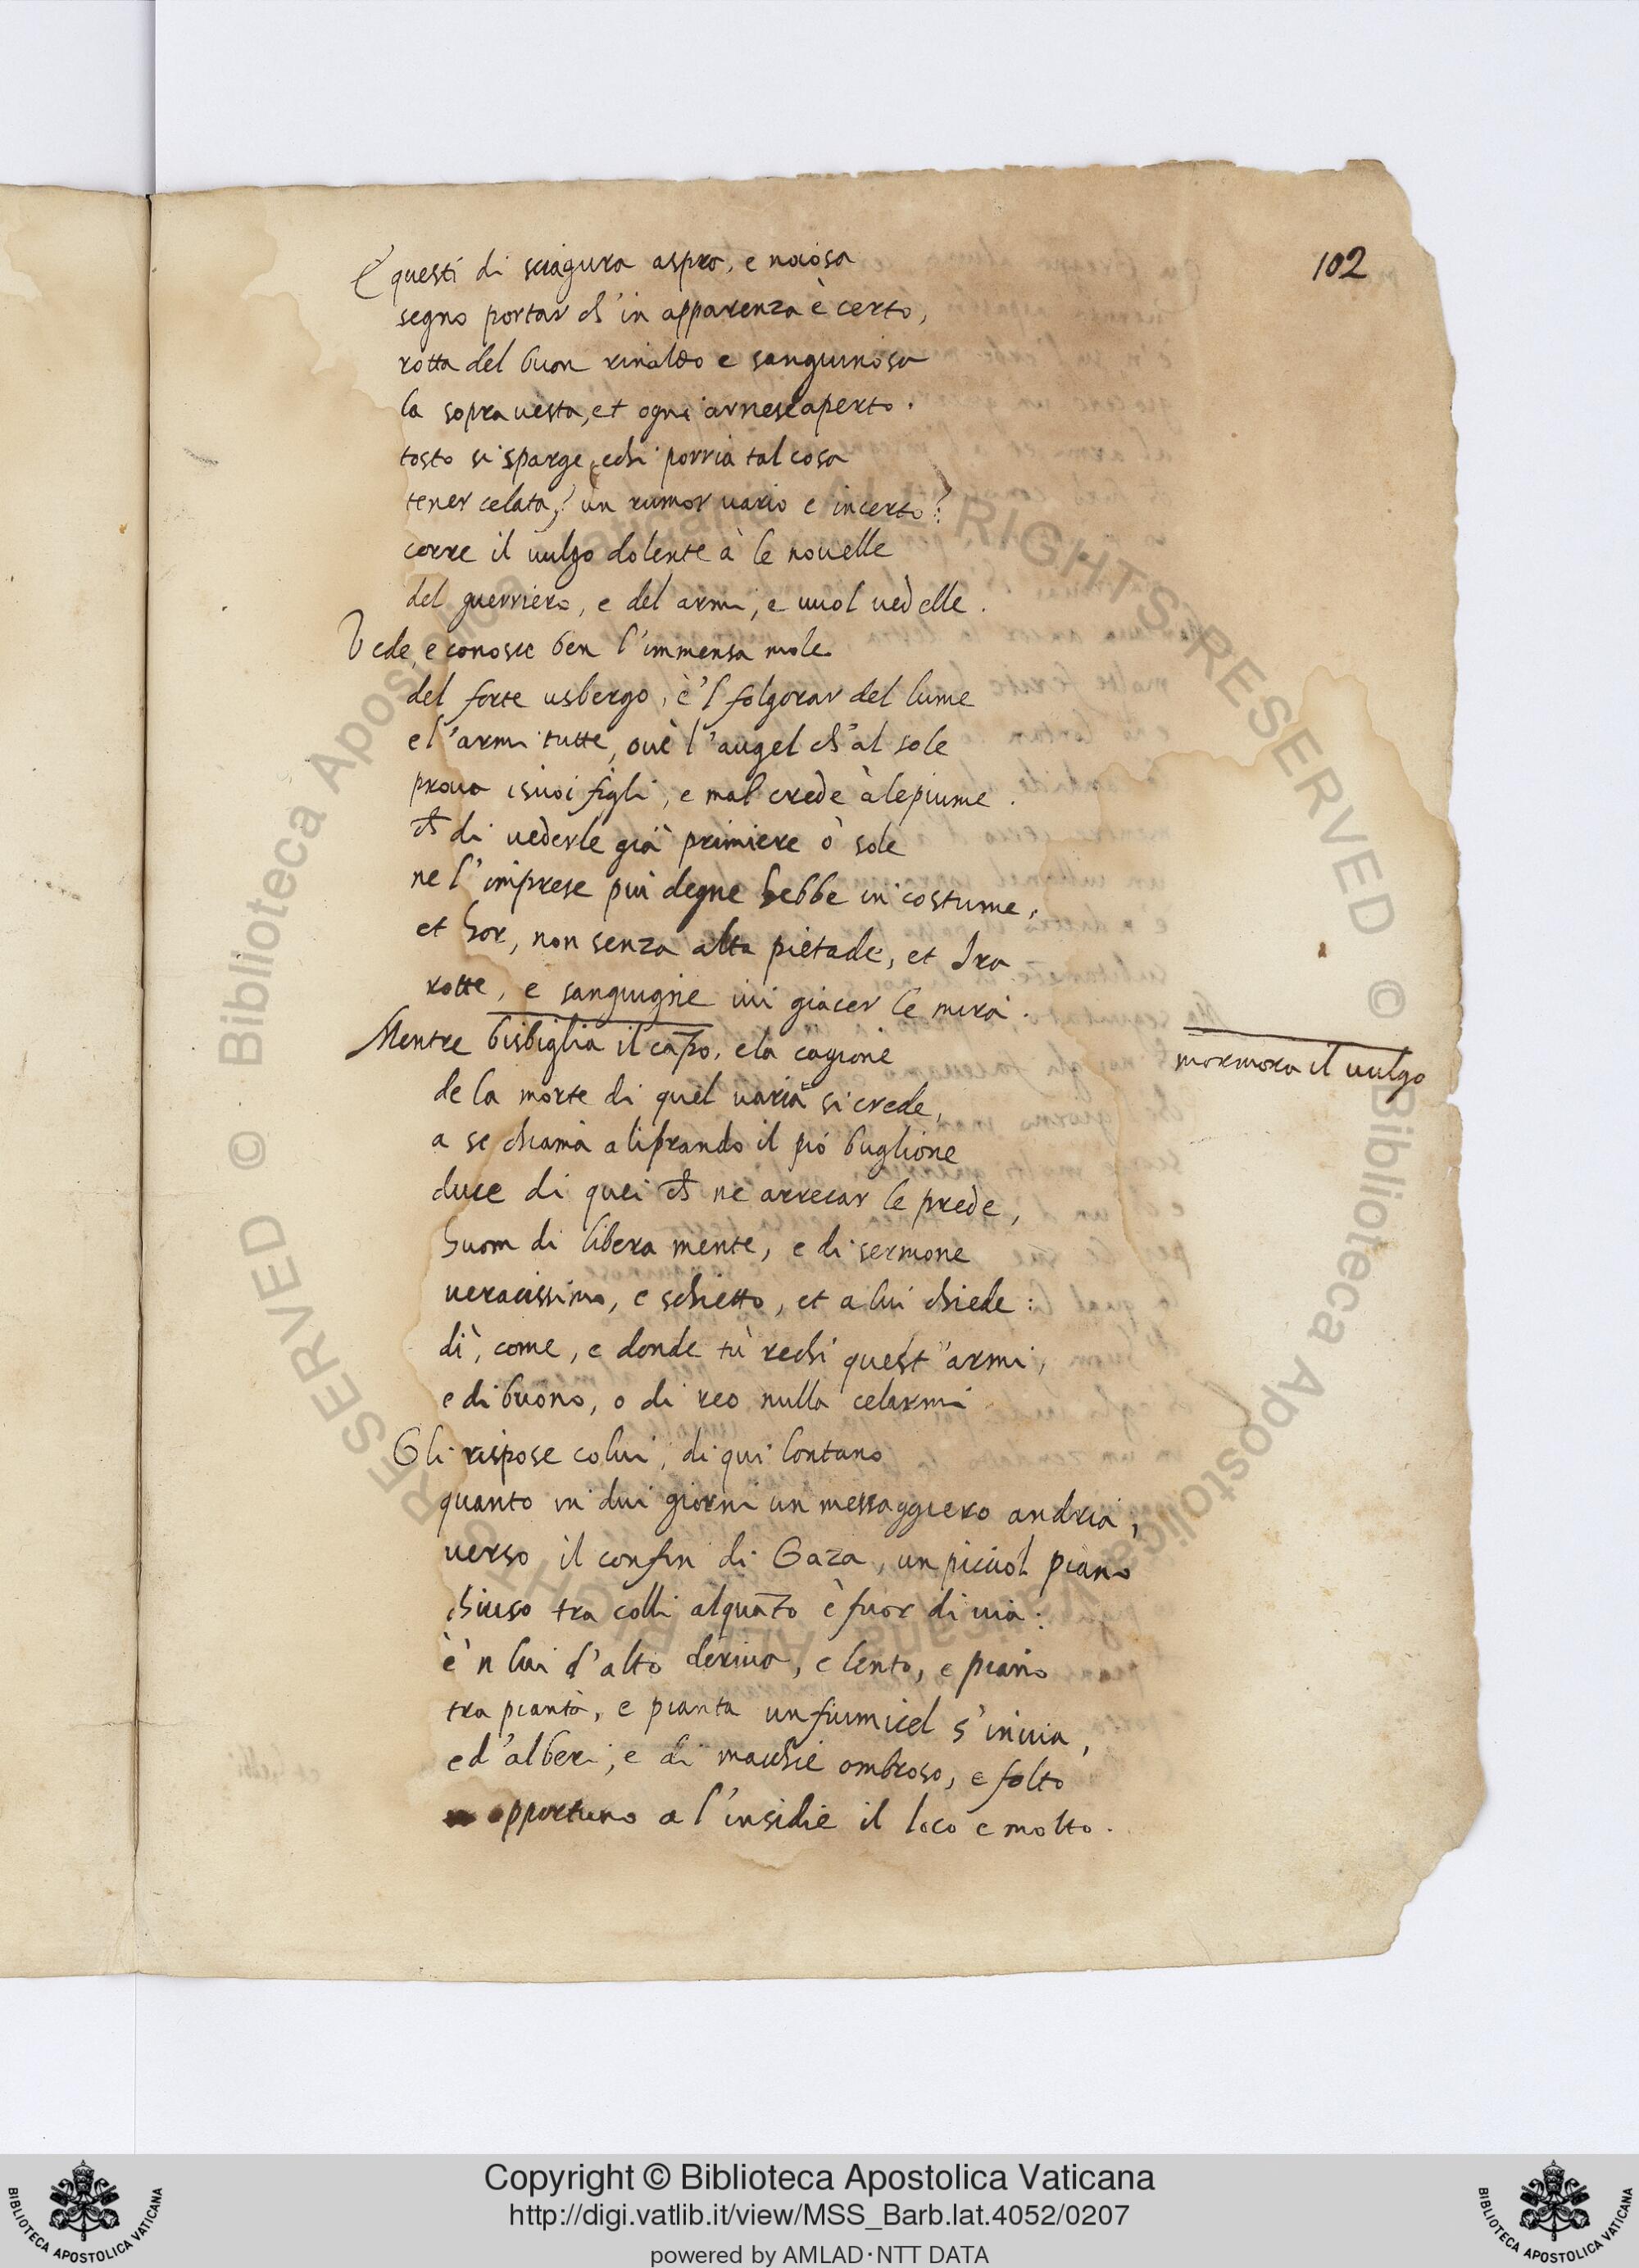 102
E questi di sciagura aspra, e noiosa
segno portar ch'in apparenza è certo,
rotta del buon rinaldo e sanguinosa
la sopra uesta, et ogni arnese aperto.
tosto si sparge, e chi porria tal cosa
tener celata? un rumor uario e incerto?
corre il uulgo dolente à le nouelle
del guerriero, e del armi, e uuol uedelle.
Vede, e conosce ben l'immensa mole
del forte usbergo, è'l folgorar del lume
e l'armi tutte, oue è l'augel ch'al sole
proua i suoi figli, e mal crede à le piume.
ch di uederle già primiere ò sole
ne l'imprese piu degne hebbe in costume,
et hor, non senza alta pietade, et Ira
rotte, e sanguigne iui giacer le mira.
Mentre bisbiglia il cāpo, e la cagione
mormora il uulgo
de la morte di quel uaria si crede,
a se chiama aliprando il pio buglione
duce di quei ch ne arrecar le prede,
huom di libera mente, e di sermone
ueracissimo, e schietto, et a lui chiede:
di, come, e donde tù rechi quest'armi,
e di buono, o di reo nulla celarmi
Gli rispose colui, di qui lontano
quanto in dui giorni un messaggiero andria,
uerso il confin di Gaza, un picciol piano
chiuso tra colli alquāto è fuor di uia.
è'n lui d'alto deriua, e lento, e piano
tra pianta, e pianta un fiumicel s'inuia,
e d'alberi, e di macchie ombroso, e folto
opportuno a l'insidie il loco e molto.
© Biblioteca Apostolica Vaticana ALL RIGHTS RESERVED © Biblioteca Apostolica Vaticana ALL RIGHTS RESERVED
BIBLIOTECA APOSTOLICA VATICANA
Copyright © Biblioteca Apostolica Vaticana
http://digi.vatlib.it/view/MSS_Barb.lat.4052/0207
powered by AMLAD·NTT DATA
BIBLIOTECA APOSTOLICA VATICANA